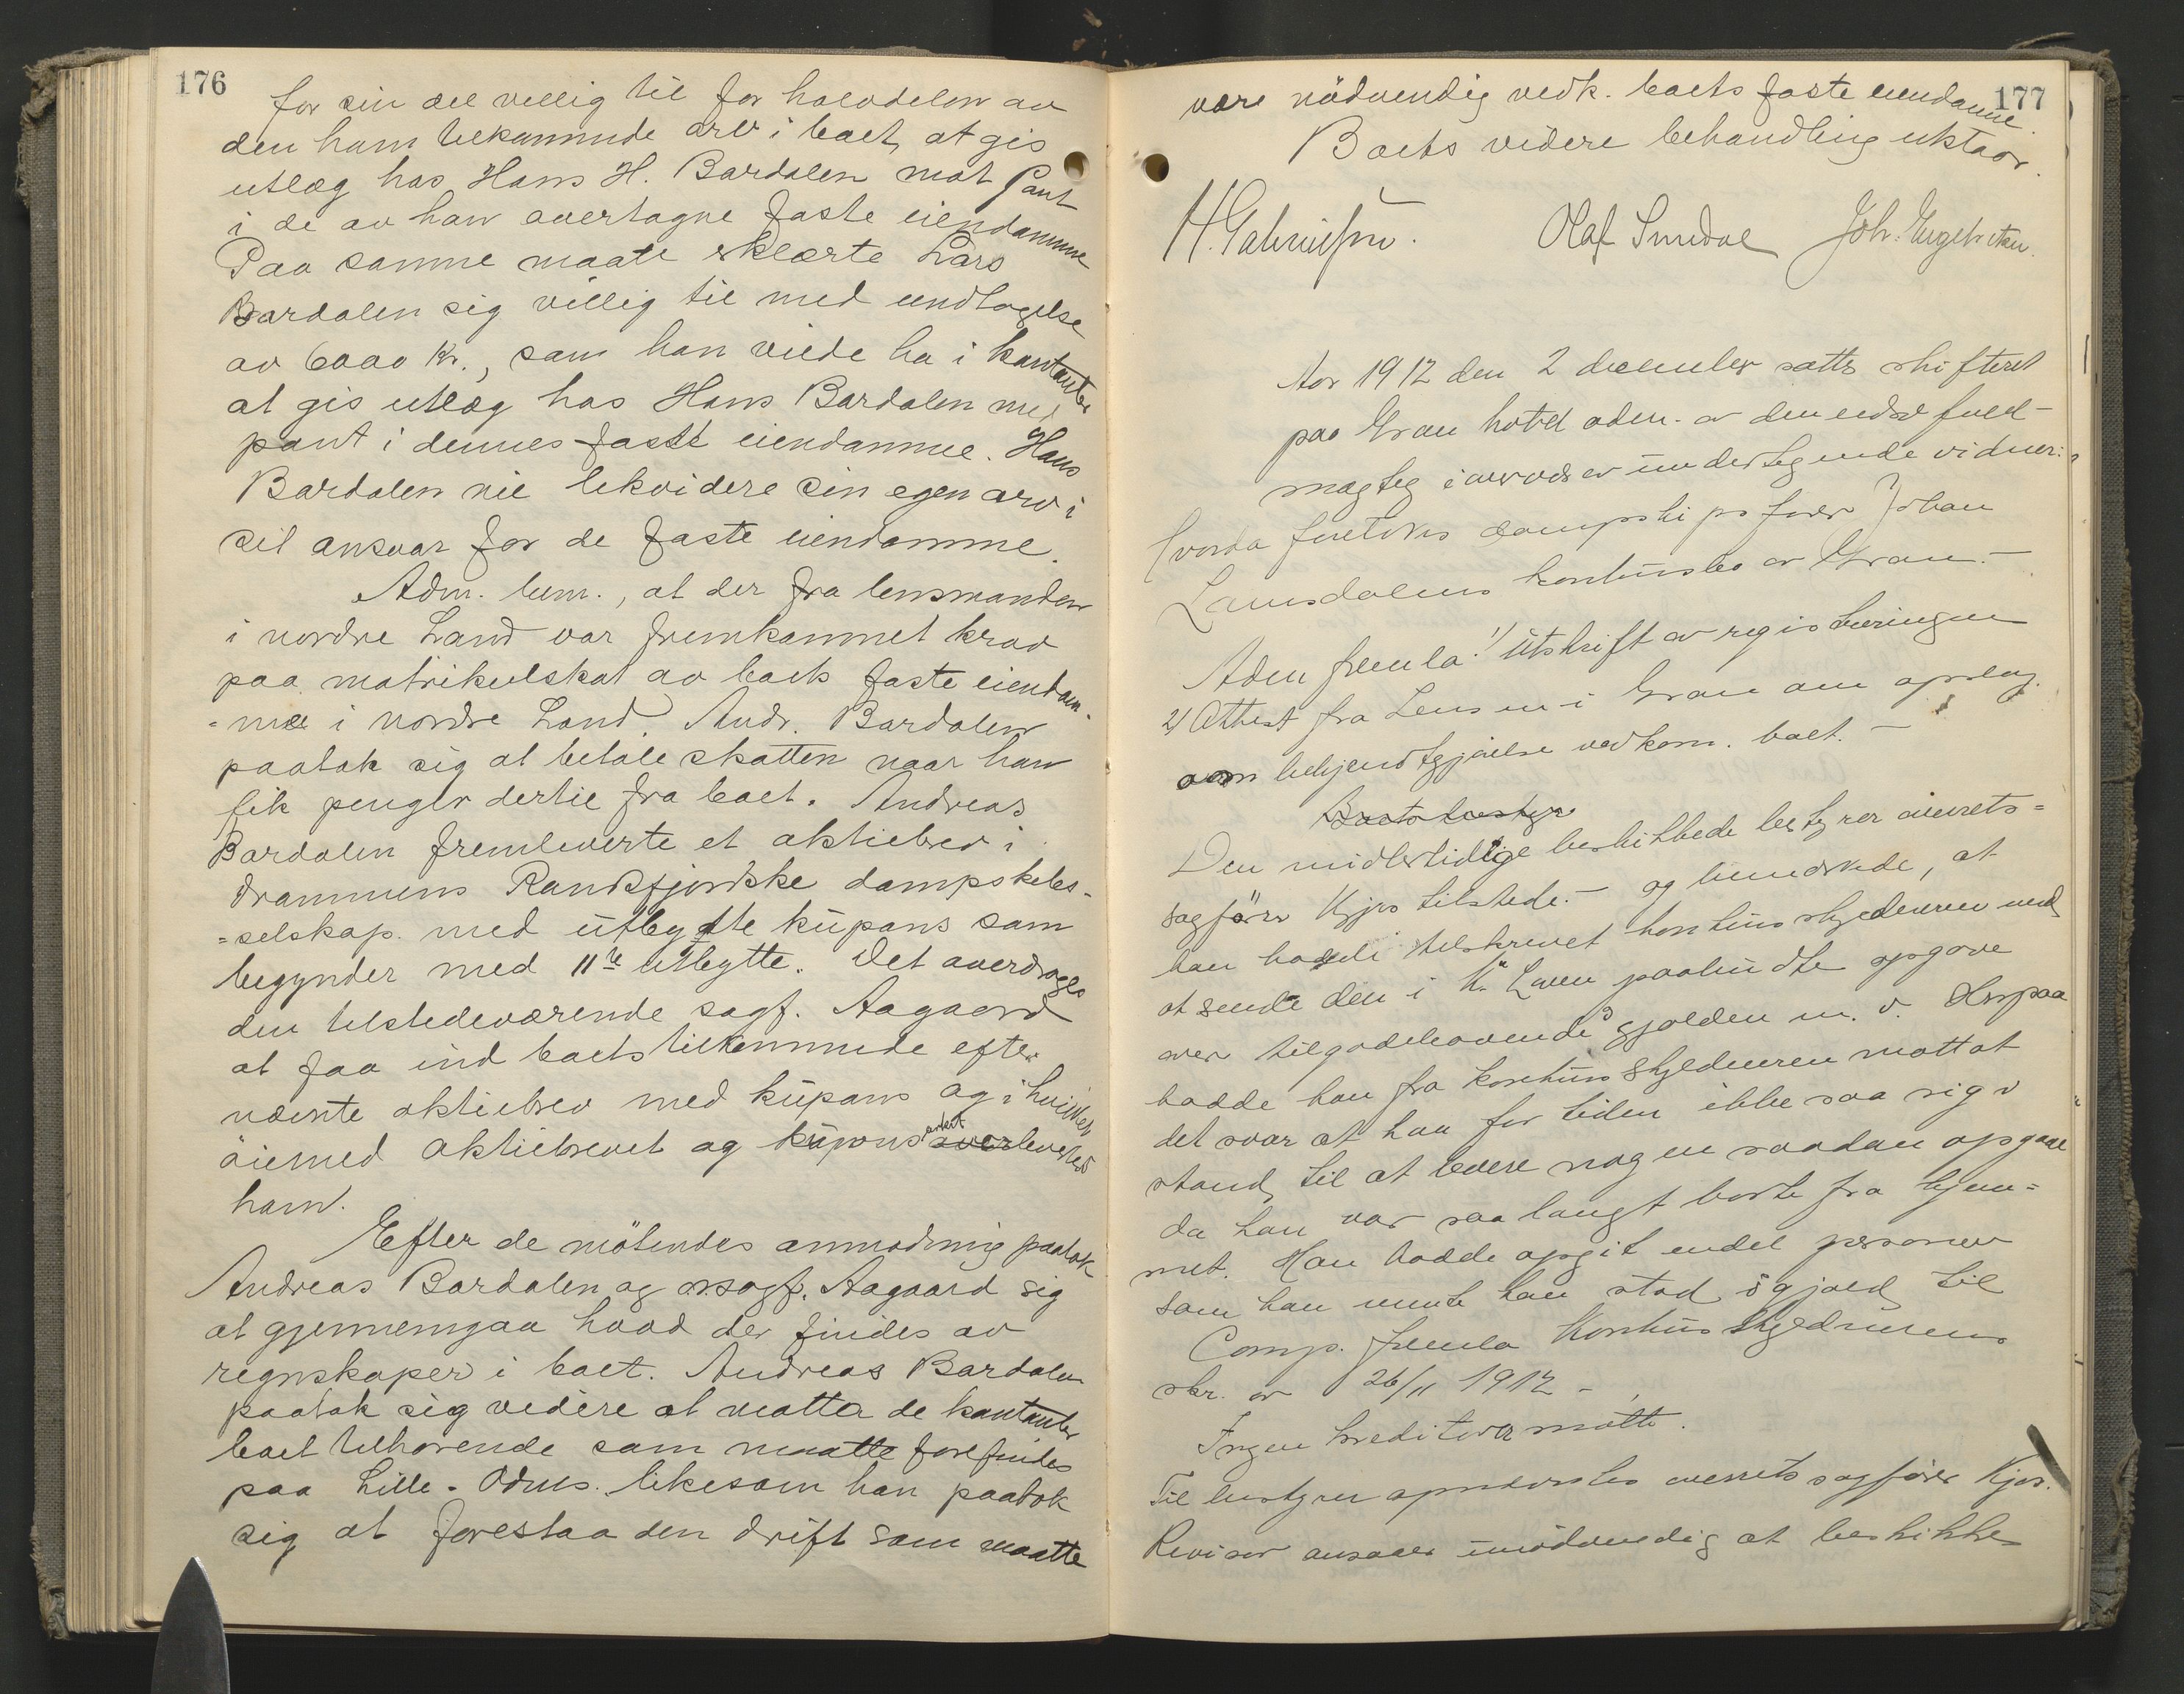 176
for sin del villig til for halvdelen av
den ham tilkommende arv i boet, at gis
utlæg hos Hans H. Bardalen mot Pant
i de av ham overtagne faste eiendomme
Paa samme maate erklærte Lars
Bardalen sig villig til med undtagelse
av 6000 kr., som han vilde ha i kontanter
at gis utlæg hos Hans Bardalen med
pant i dennes faste eiendomme. Hans
Bardalen vil likvidere sin egen arv i
sit ansvar for de faste eiendomme.
Adm. bem., at der fra lensmanden
i nordre Land var fremkommet krav
paa matrikulskat av boets faste eiendom-
=me i nordre Land. Andr. Bardalen
paatok sig at betale skatten naar han
fik penger dertil fra boet. Andreas
Bardalen fremleverte et aktiebrev i
Drammens Randsfjordske dampskibs-
=selskap med utbygtte kupons som
begynder med 11te utbytte. Det overdroges
den tilstedeværende sagf. Aagaard
at faa ind boets tilkommende efter
nævnte aktiebrev med kupons og i hvilket
öiemed aktiebrevet og kupons overlevertes
ham.
Efter de mötendes anmodning paatok
Andreas Bardalen og o.sagf. Aagaard sig
at gjennemgaa hvad der findes av
regnskaper i boet. Andreas Bardalen
paatok sig videre at motta de kontanter
boet tilhörende som maatte forefindes
paa Lille-Odnes likesom han paatok
sig at forestaa den drift som maatte
177
være nödvendig vedk. boets faste eiendomme.
Boets videre behandling utstaar.
Olaf Smedal Joh. Engebretsen.
Aar 1912 den 2 december sattes skifteret
paa Gran hotel adm. av den edsv fuld-
mægtig i overvær av undertegnede vidner:
Hvorda foretokes dampskipsförer Johan
konkursbo av Gran.-
Adm fremla: 1) Utskrift av registreringen
2) Attest fra Lensm i Gran om opslag
om bekjendtgjörelse vedkom. boet. -
Boets bestyr
Den midlertidige beskikkede bestyrer overrets=
sagförer Kjos tilstede.- og bemerkede, at
han hadde tilskrevet konkursskyldneren med
at sende den i K. Loven paabudte opgave
over tilgodehavende, gjælden m. v. Herpaa
hadde han fra konkursskyldneren mottat
det svar at han for tiden ikke saa sig i
stand til at levere nogen saadan opgave
da han var saa langt borte fra hjem=
met. Han hadde opgit endel personer
som han mente han stod i gjæld til
Comp. fremla Konkursskyldnerens
skr. av 26/11 1912 -,
Ingen kreditorer mötte.
Til bestyrer opnævntes overretssagförer Kjos.
Revisor ansaaes unödvendig at beskikke